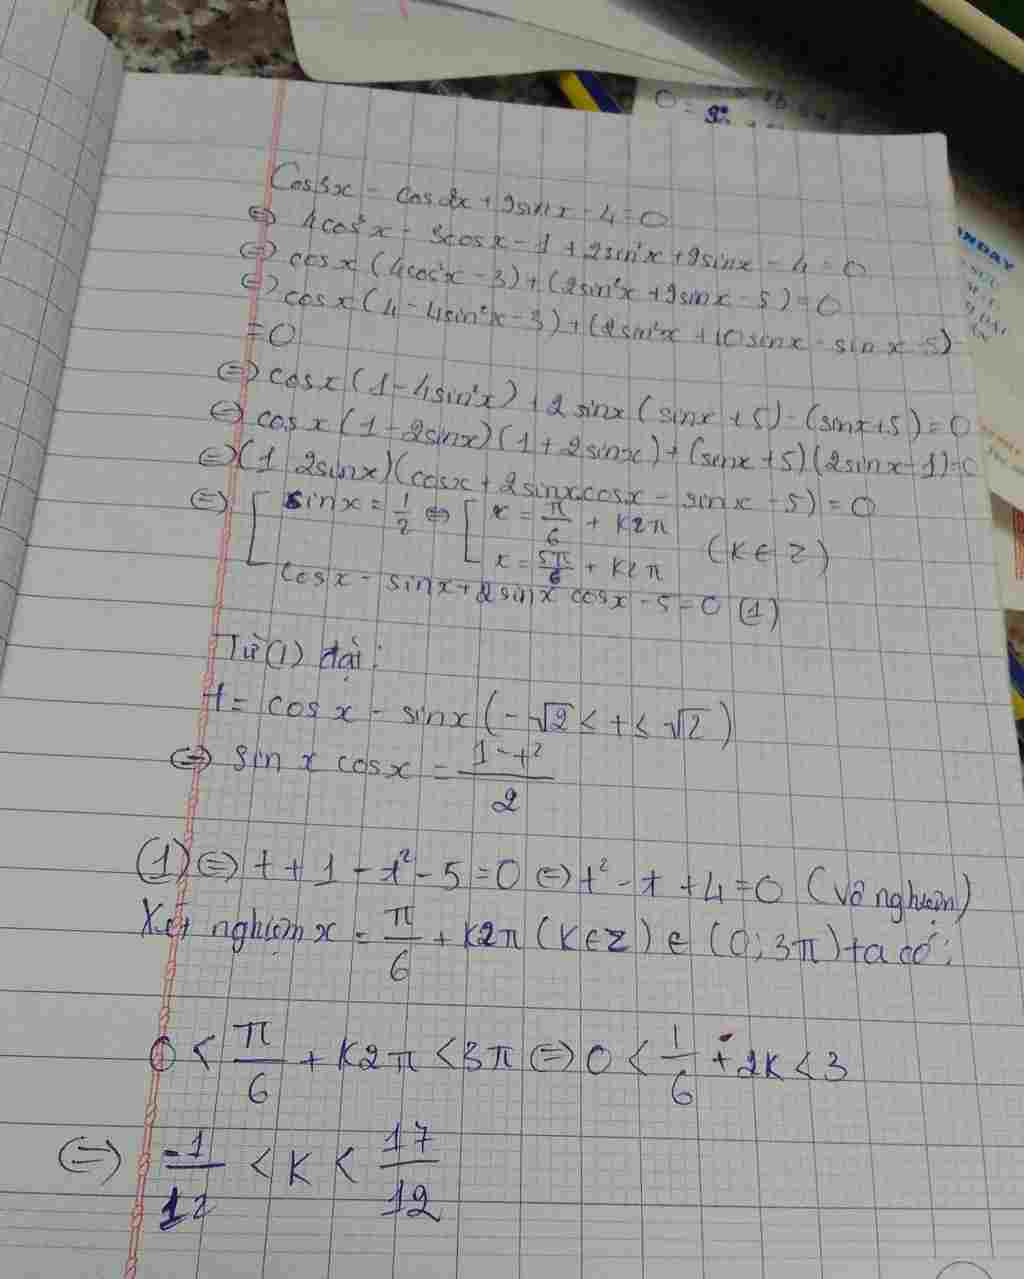 Cos3x - cos2x + 9sinx - 4 = 0
⇔ 4cos³x - 3cosx - 1 + 2sin²x + 9sinx - 4 = 0
⇔ cosx (4cos²x - 3) + (2sin²x + 9sinx - 5) = 0
⇔ cosx (4 - 4sin²x - 3) + (2sin²x + 10sinx - sinx - 5)
= 0
⇔ cosx (1 - 4sin²x) + 2sinx (sinx + 5) - (sinx + 5) = 0
⇔ cosx (1 - 2sinx)(1 + 2sinx) + (sinx + 5)(2sinx - 1) = 0
⇔ (1 2sinx)(cosx + 2sinxcosx - sinx - 5) = 0
⇔ [ sinx = 1/2 ⇔ [ x = π/6 + k2π
x = 5π/6 + k2π (k ∈ Z)
cosx - sinx + 2sinx cosx - 5 = 0 (1)
Từ (1) đặt:
t = cosx - sinx (-√2 ≤ t ≤ √2)
⇔ sinx cosx = (1 - t²)/2
(1) ⇔ t + 1 - t² - 5 = 0 ⇔ t² - t + 4 = 0 (Vô nghiệm)
Xét nghiệm x = π/6 + k2π (k ∈ Z) ∈ (0; 3π) ta có:
0 < π/6 + k2π < 3π ⇔ 0 < 1/6 + 2k < 3
⇔ -1/12 < k < 17/12